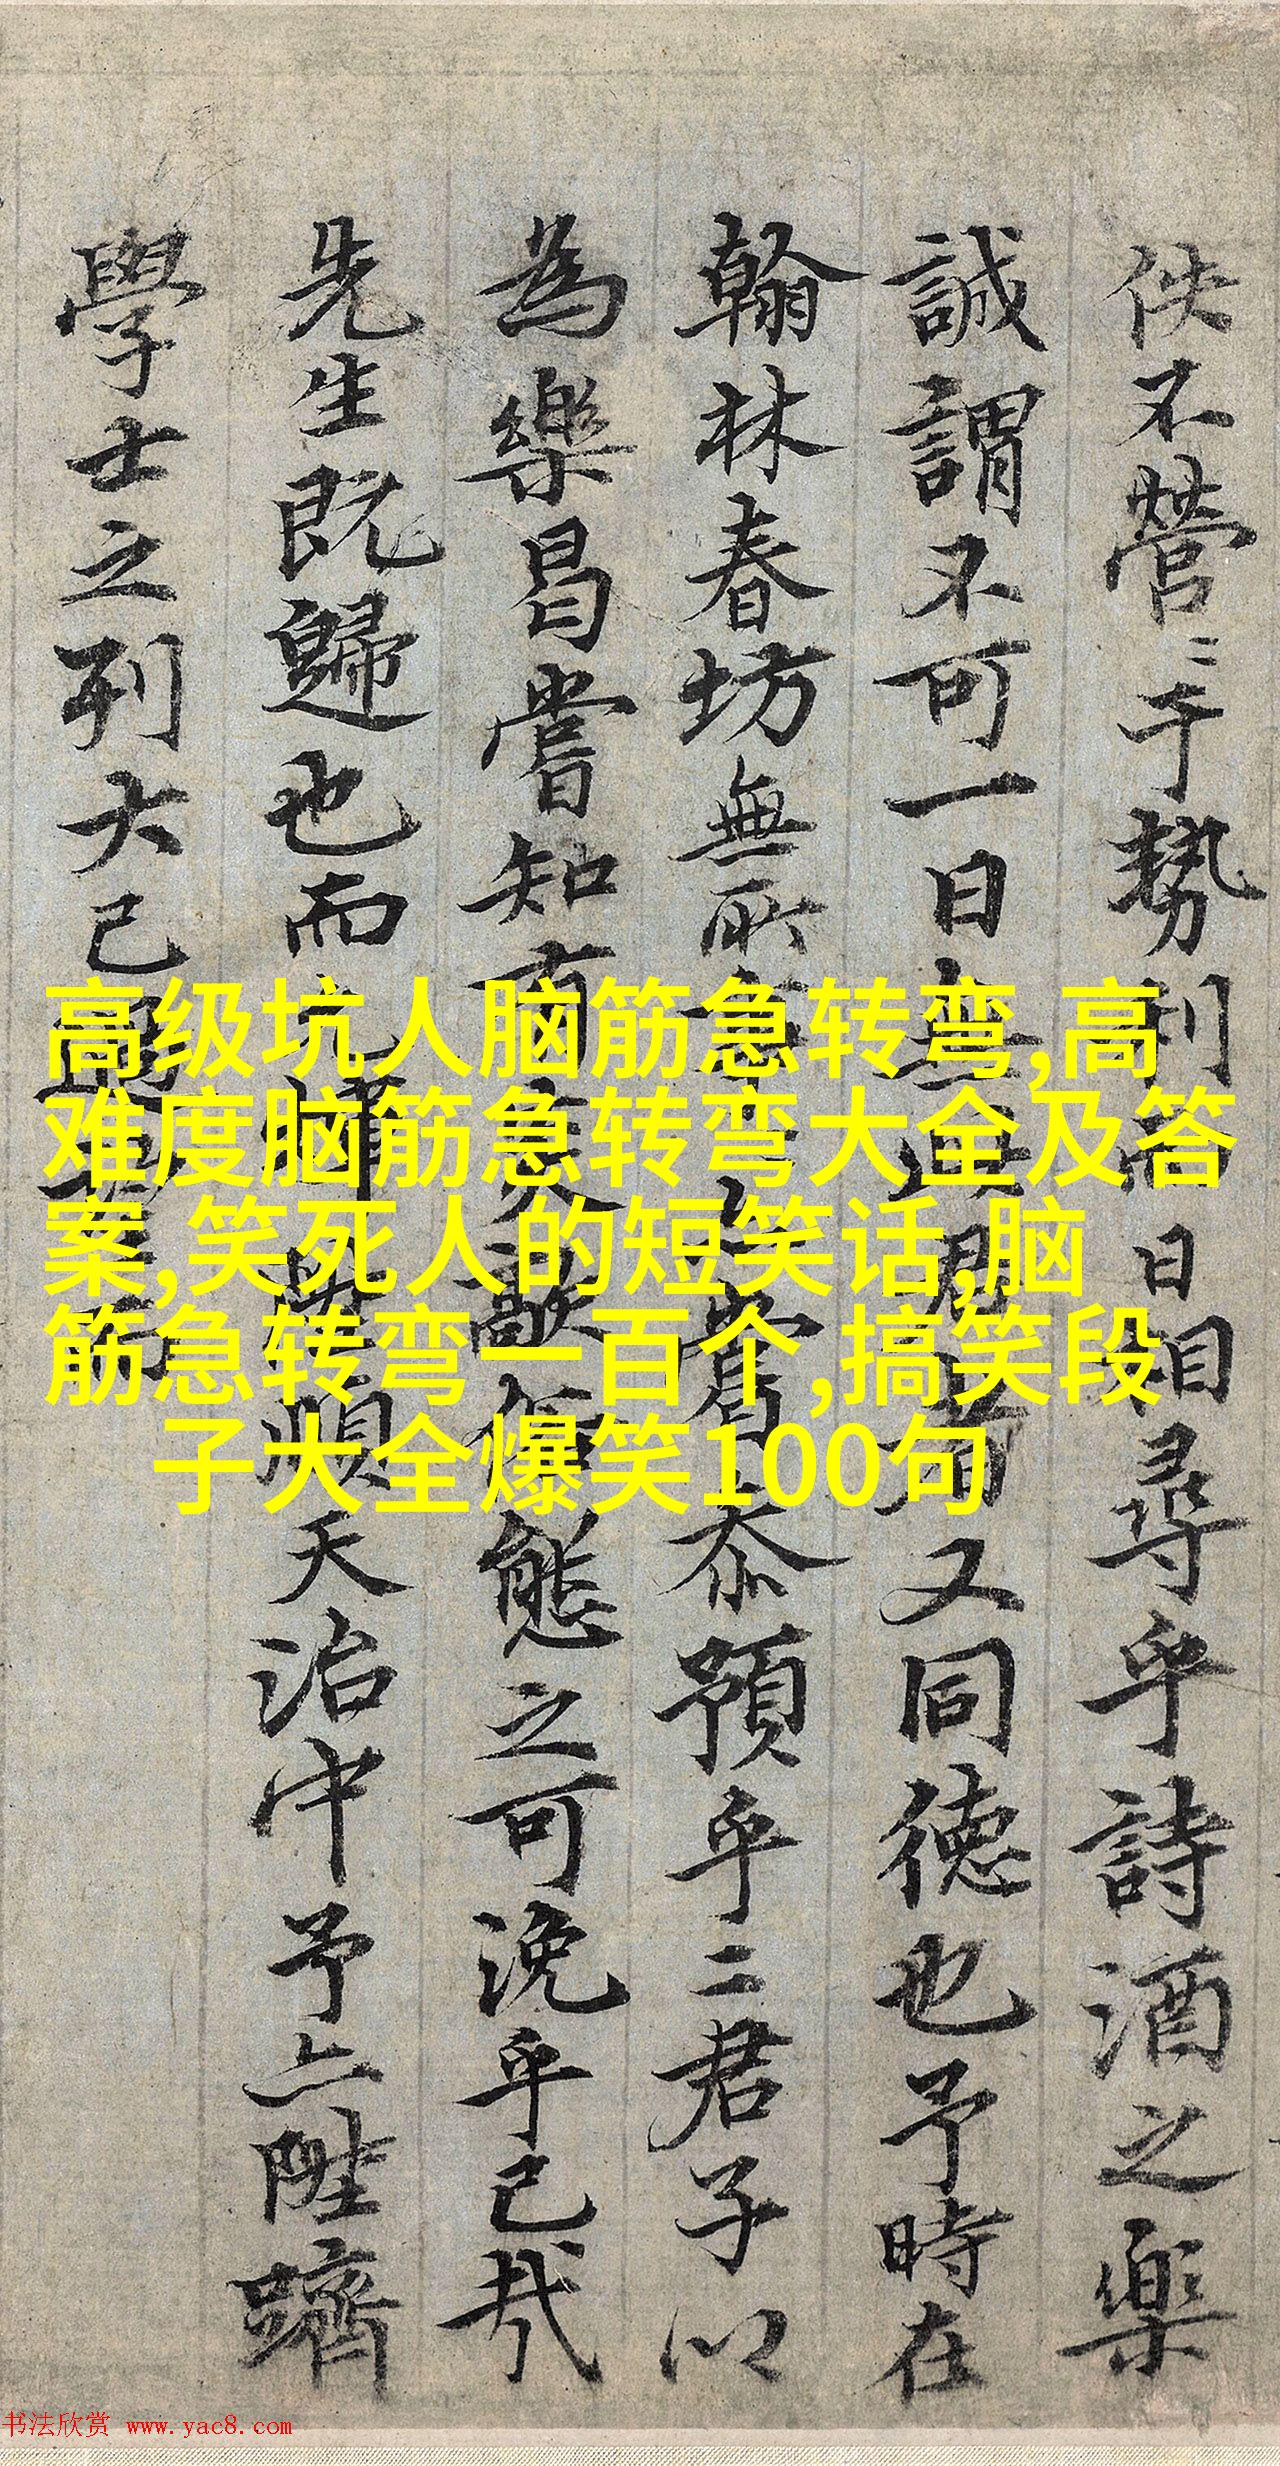 佚不營〻于勢利日相尋乎詩酒之樂
誠謂不可一日無又同德也予時在
翰林春坊無所忝預乎二君子以
為樂曷嘗知有態之可浼乎己哉
先生既歸也而順天治中予亦陞躋
學士之列大已
高级坑人脑筋急转弯,高
难度脑筋急转弯大全及答
案,笑死人的短笑话,脑
筋急转弯一百个,搞笑段
子大全爆笑100句
书法欣赏 www.yac8.com